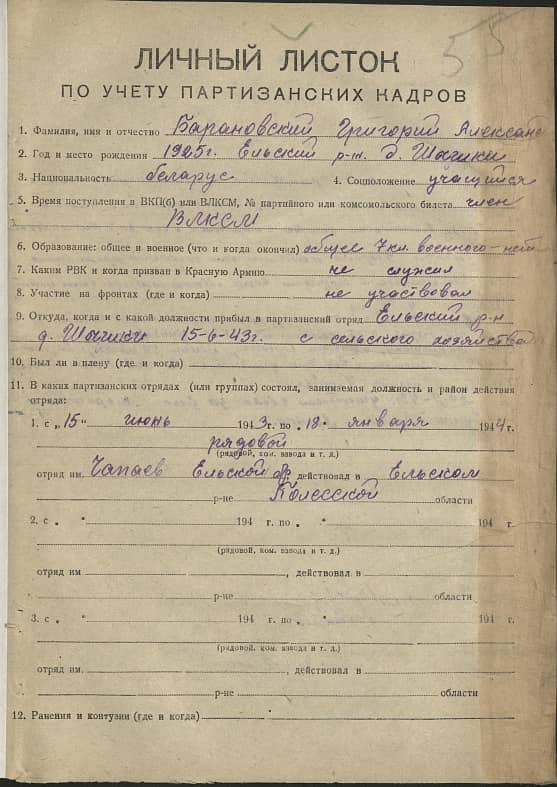 55
ЛИЧНЫЙ ЛИСТОК
ПО УЧЕТУ ПАРТИЗАНСКИХ КАДРОВ
1. Фамилия, имя и отчество Барановский Григорий Александ
2. Год и место рождения 1925г. Ельский р-н. д. Шогики
3. Национальность беларус 4. Соцположение учащийся
5. Время поступления в ВКП(б) или ВЛКСМ, № партийного или комсомольского билета член
ВЛКСМ
6. Образование: общее и военное (что и когда окончил) общее 7кл. военного-нет
7. Каким РВК и когда призван в Красную Армию не служил
8. Участие на фронтах (где и когда) не участвовал
9. Откуда, когда и с какой должности прибыл в партизанский отряд Ельский р-н
д. Шогики 15-6-43г. с сельского хозяйства
10. Был ли в плену (где и когда)
11. В каких партизанских отрядах (или группах) состоял, занимаемая должность и район действия
отряда:
1. с „15" июнь 1943г. по „18" января 1944г.
рядовой
(рядовой, ком. взвода и т. д.)
отряд им. Чапаев Ельской бр. действовал в Ельском
р-не Полесской области
2. с „ " 194 г. по „ " 194 г.
(рядовой, ком. взвода и т. д.)
отряд им , действовал в
р-не области
3. с „ " 194 г. по „ " 194 г.
(рядовой, ком. взвода и т. д.)
отряд им. , действовал в
р-не области
12. Ранения и контузии (где и когда)